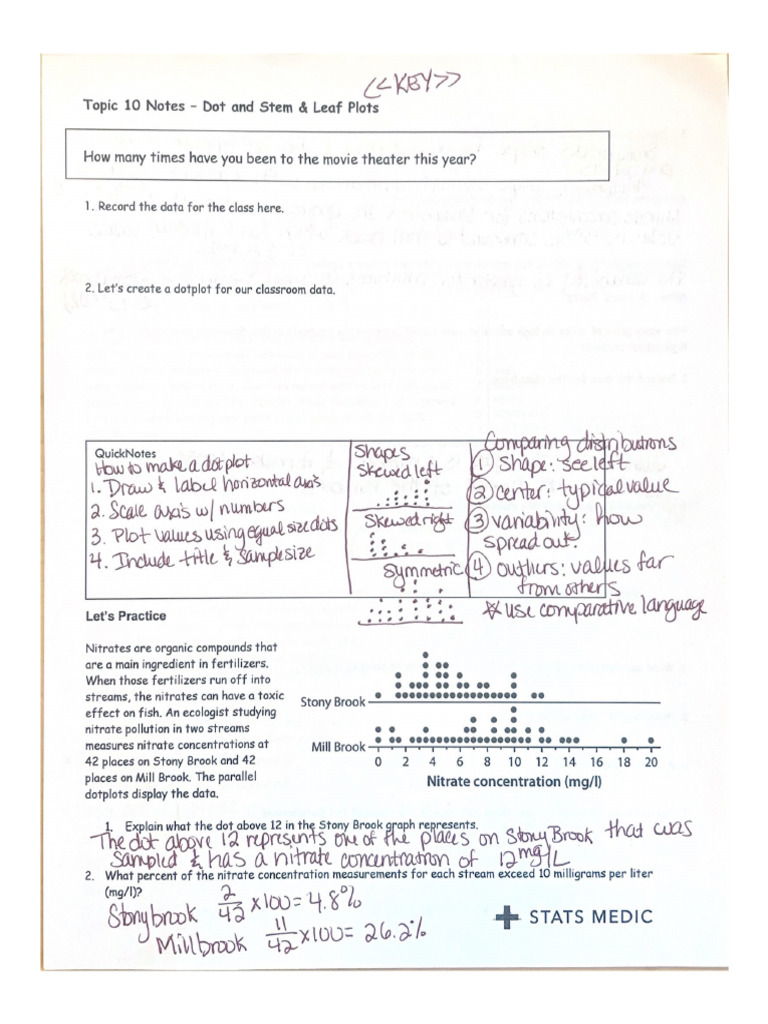 <<KEY>>
Topic 10 Notes – Dot and Stem & Leaf Plots
How many times have you been to the movie theater this year?
1. Record the data for the class here.
2. Let's create a dotplot for our classroom data.
QuickNotes
How to make a dotplot
1. Draw & label horizontal axis
2. Scale axis w/ numbers
3. Plot values using equal size dots
4. Include title & sample size
Shapes
Skewed left
Skewed right
Symmetric
Comparing distributions
① Shape: see left
② center: typical value
③ variability: how
spread out.
④ outliers: values far
from others
☆ use comparative language
Let's Practice
Nitrates are organic compounds that
are a main ingredient in fertilizers.
When those fertilizers run off into
streams, the nitrates can have a toxic
effect on fish. An ecologist studying
nitrate pollution in two streams
measures nitrate concentrations at
42 places on Stony Brook and 42
places on Mill Brook. The parallel
dotplots display the data.
Stony Brook
Mill Brook
0 2 4 6 8 10 12 14 16 18 20
Nitrate concentration (mg/l)
1. Explain what the dot above 12 in the Stony Brook graph represents.
The dot above 12 represents one of the places on Stony Brook that was
sampled & has a nitrate concentration of 12 mg/L
2. What percent of the nitrate concentration measurements for each stream exceed 10 milligrams per liter
(mg/l)?
Stonybrook 2/42 x100= 4.8%
Millbrook 11/42 x100= 26.2%
STATS MEDIC